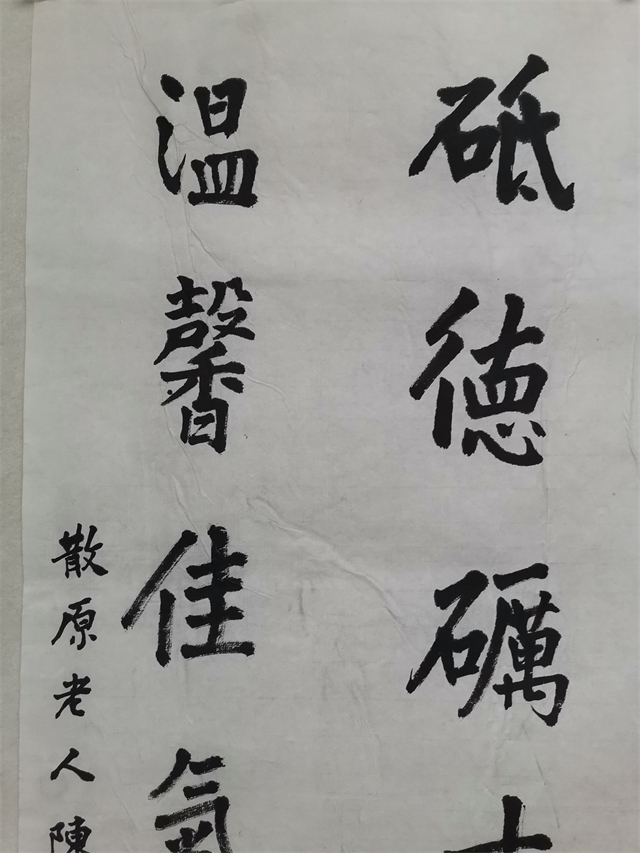 砥德礪
温馨佳氣
散原老人陳